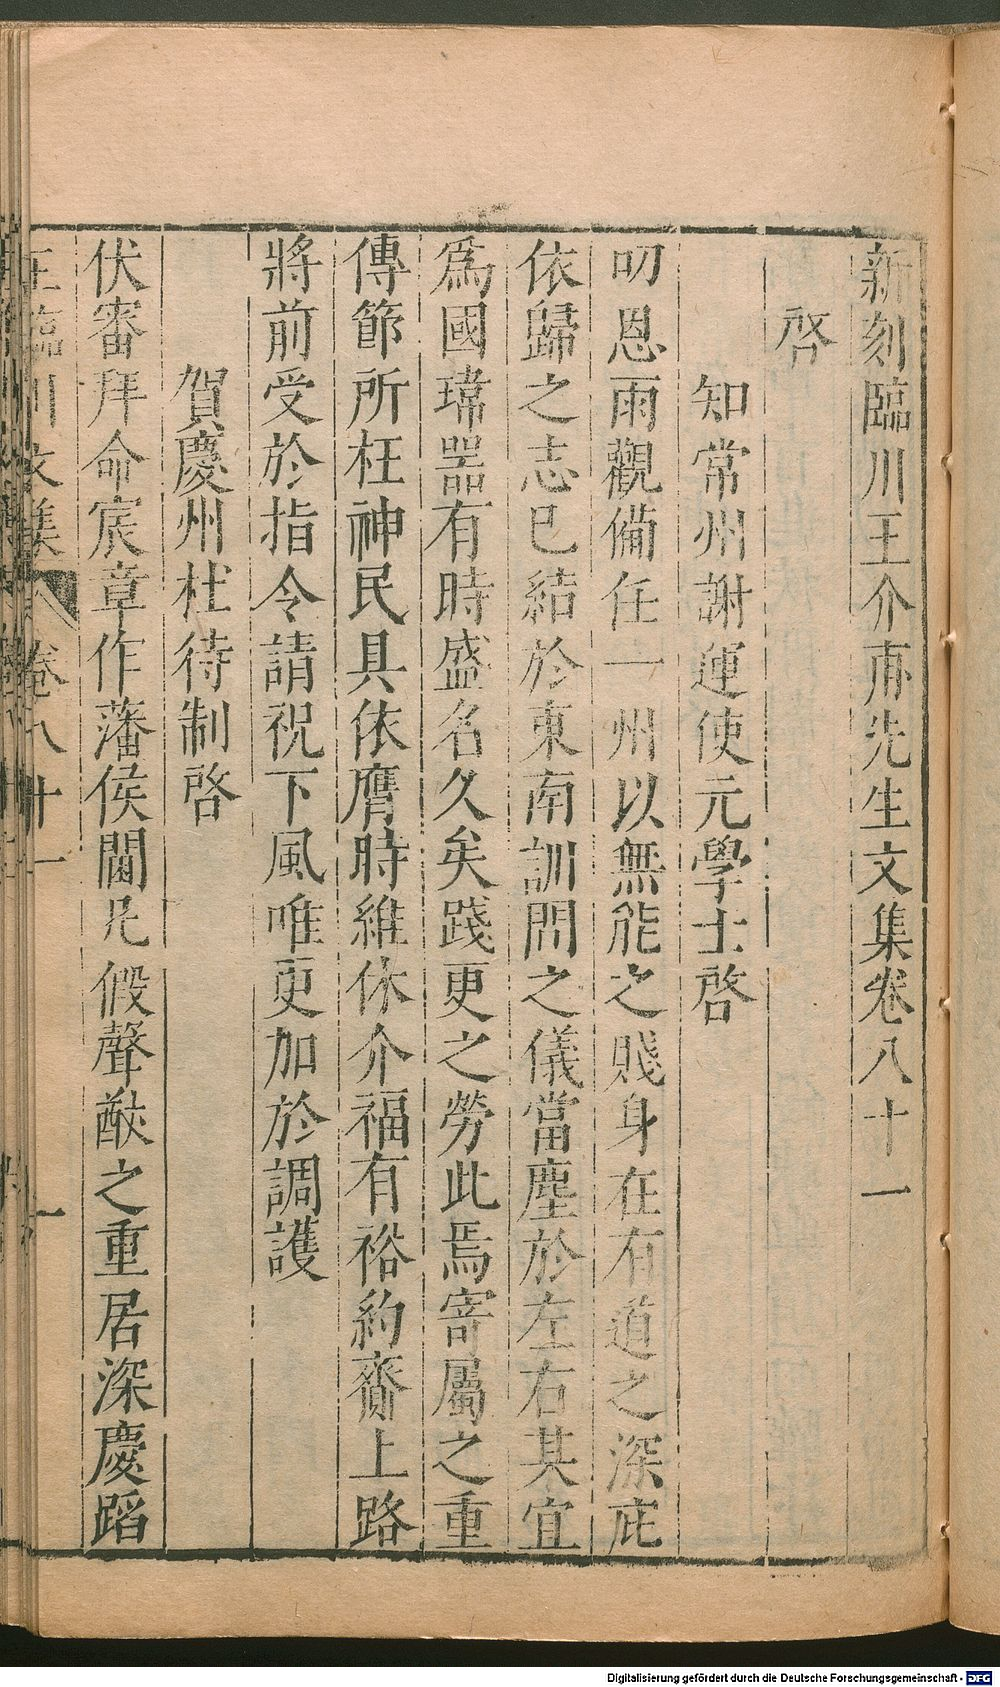 新刻臨川王介甫先生文集卷八十一
啓
知常州謝運使元學士啓
叨恩雨觀備任一州以無能之賤身在有道之深庇
依歸之志已結於東南訓問之儀當塵於左右其宜
爲國瑋器有時盛名久矣踐更之勞此焉寄屬之重
傳節所枉神民具依膺時維休介福有裕約齎上路
將前受於指令請祝下風唯更加於調護
賀慶州杜待制啓
伏審拜命宸章作藩侯閫凡假聲猷之重居深慶蹈
王臨川文集 卷八十一 一
Digitalisierung gefördert durch die Deutsche Forschungsgemeinschaft - DFG